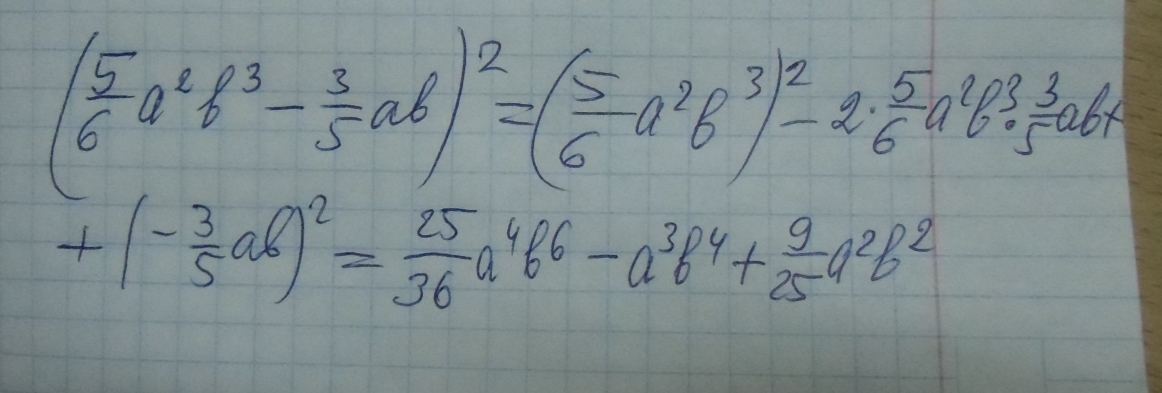 (5/6 a²b³ − 3/5 ab)² = (5/6 a²b³)² − 2·5/6 a²b³·3/5 ab +
+ (−3/5 ab)² = 25/36 a⁴b⁶ − a³b⁴ + 9/25 a²b²